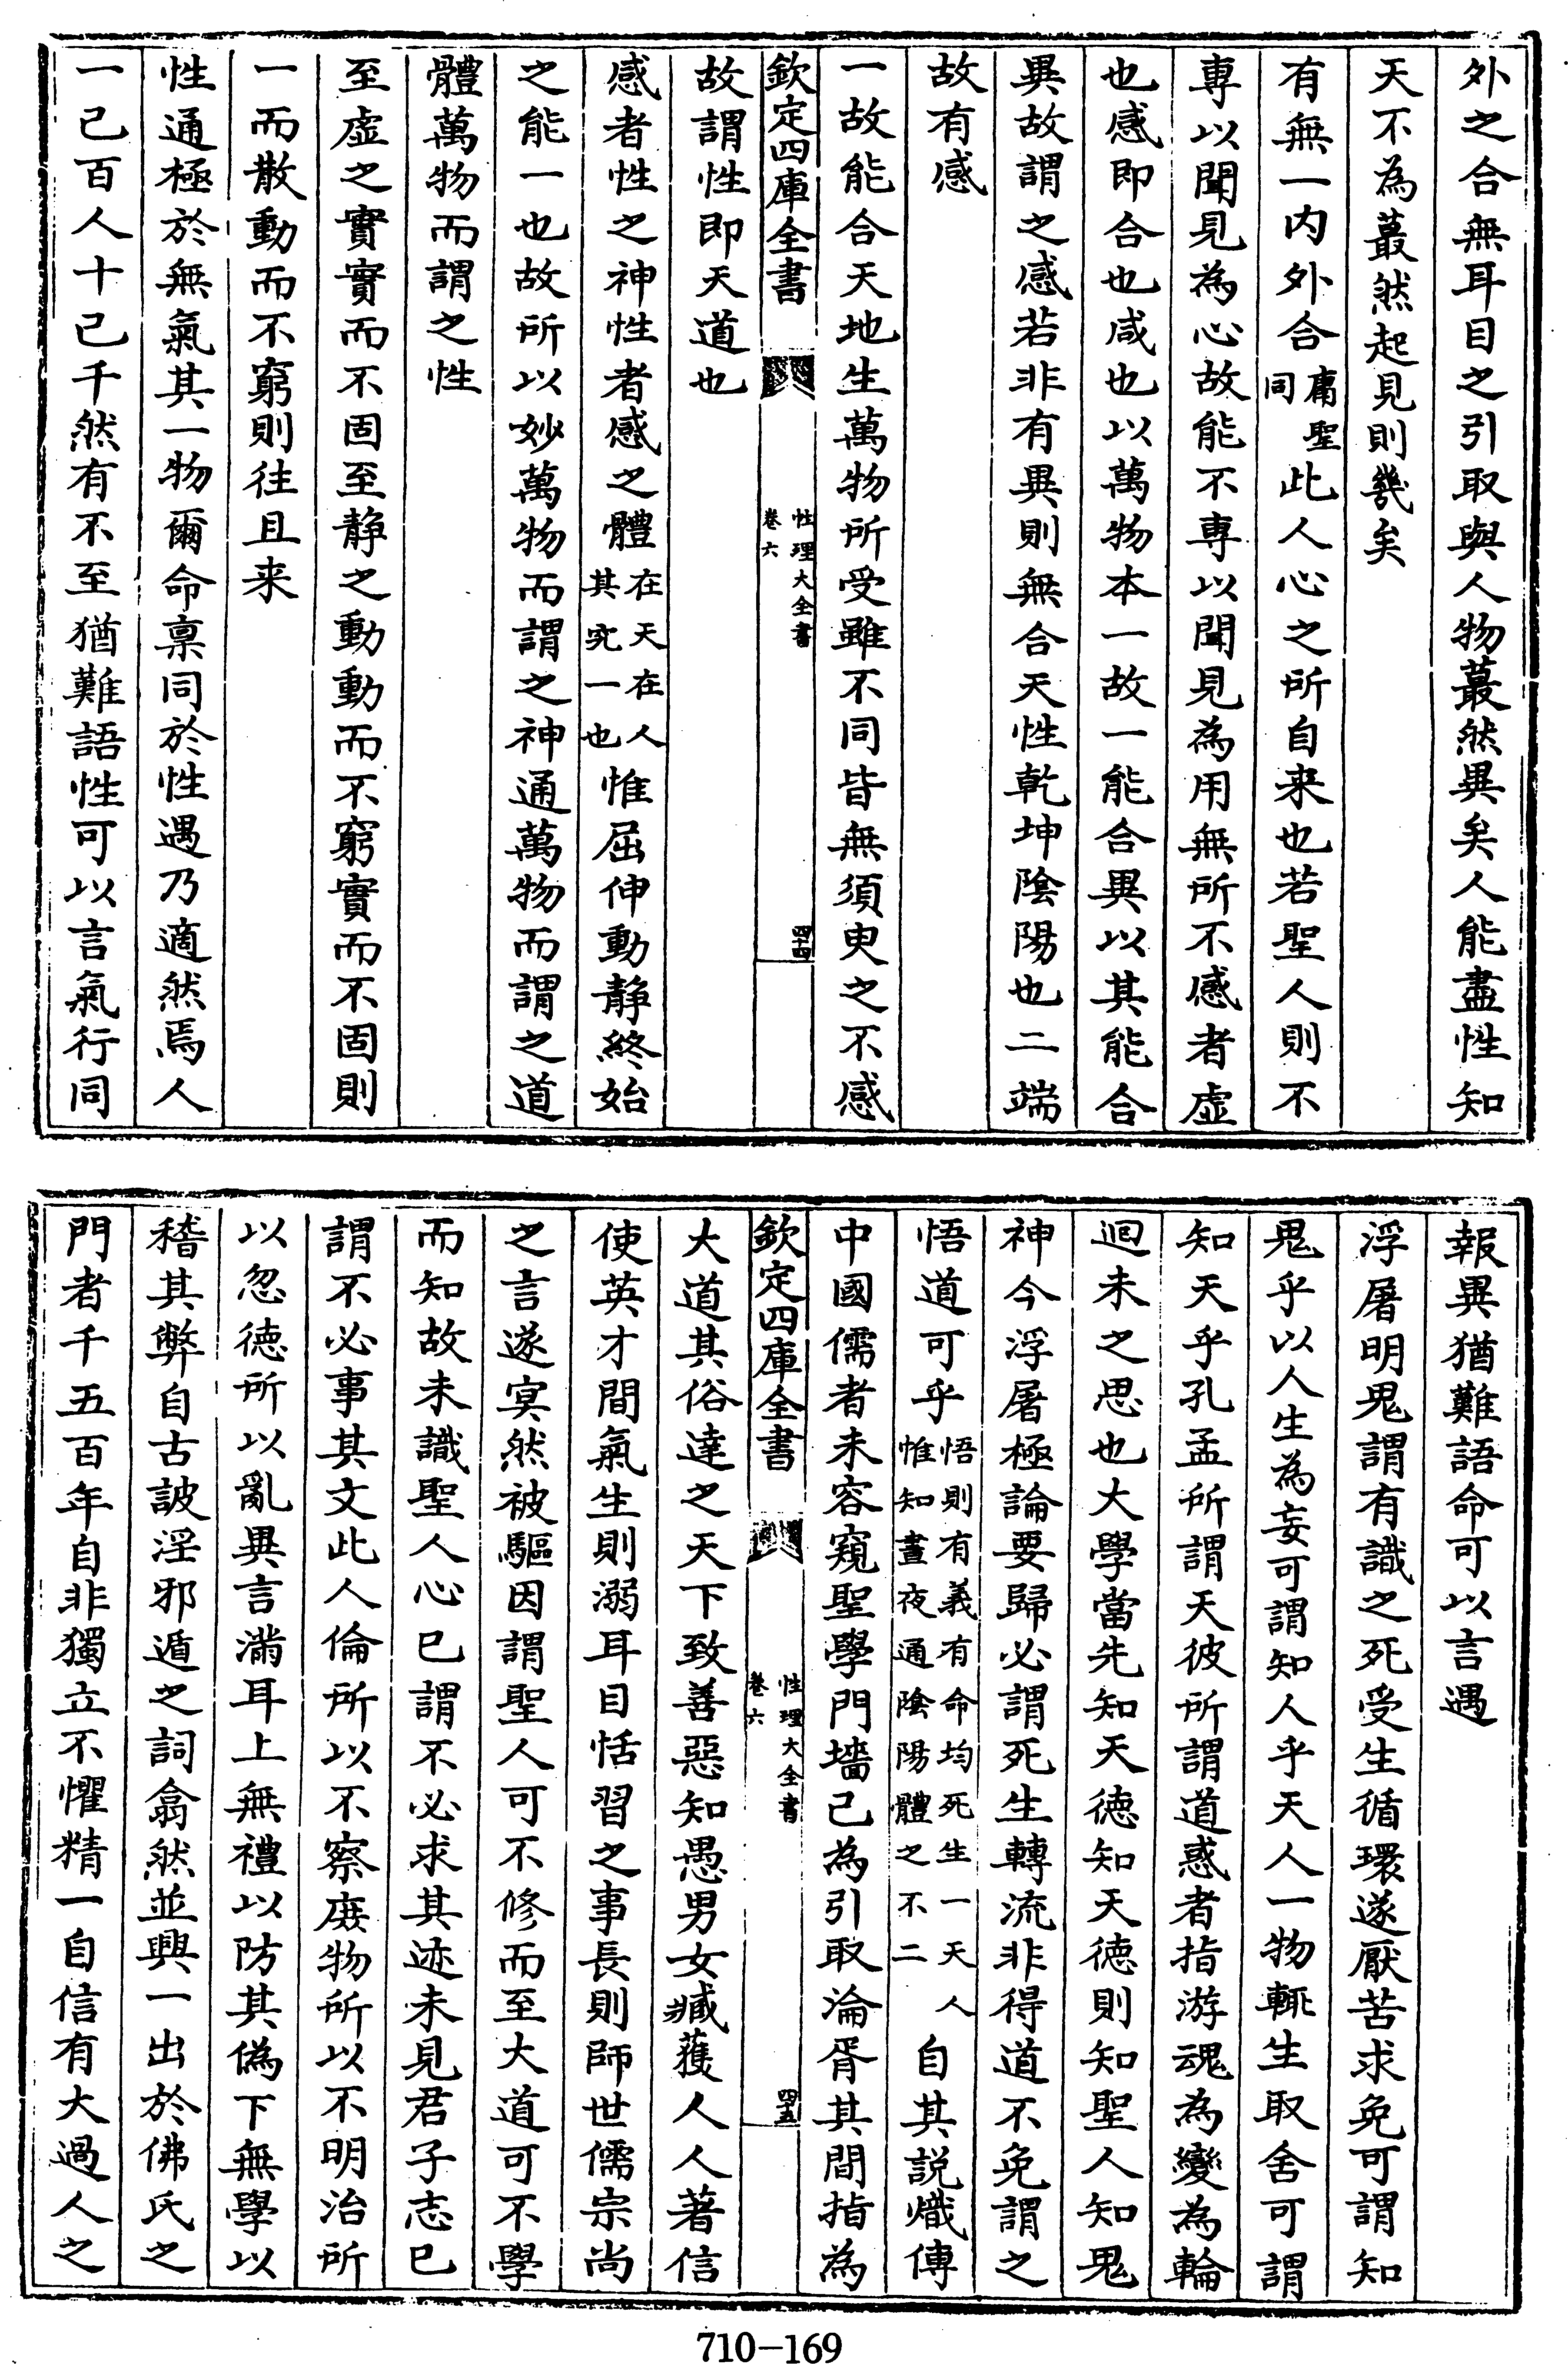 外之合無耳目之引取與人物蕞然異矣人能盡性知
天不為蕞然起見則幾矣
有無一内外合庸聖同此人心之所自来也若聖人則不
專以聞見為心故能不專以聞見為用無所不感者虛
也感即合也咸也以萬物本一故一能合異以其能合
異故謂之感若非有異則無合天性乾坤陰陽也二端
故有感
一故能合天地生萬物所受雖不同皆無須臾之不感
欽定四庫全書 性理大全書 卷六 四十四
故謂性即天道也
感者性之神性者感之體在天在人其究一也惟屈伸動静終始
之能一也故所以妙萬物而謂之神通萬物而謂之道
體萬物而謂之性
至虛之實實而不固至静之動動而不窮實而不固則
一而散動而不窮則往且来
性通極於無氣其一物爾命禀同於性遇乃適然焉人
一己百人十己千然有不至猶難語性可以言氣行同
報異猶難語命可以言遇
浮屠明鬼謂有識之死受生循環遂厭苦求免可謂知
鬼乎以人生為妄可謂知人乎天人一物輒生取舍可謂
知天乎孔孟所謂天彼所謂道惑者指游魂為變為輪
迴未之思也大學當先知天德知天德則知聖人知鬼
神今浮屠極論要歸必謂死生轉流非得道不免謂之
悟道可乎悟則有義有命均死生一天人惟知晝夜通陰陽體之不二自其説熾傳
中國儒者未容窺聖學門墻已為引取淪胥其間指為
欽定四庫全書 性理大全書 卷六 四十五
大道其俗達之天下致善惡知愚男女臧獲人人著信
使英才間氣生則溺耳目恬習之事長則師世儒宗尚
之言遂㝠然被驅因謂聖人可不修而至大道可不學
而知故未識聖人心已謂不必求其迹未見君子志已
謂不必事其文此人倫所以不察庶物所以不明治所
以忽德所以亂異言滿耳上無禮以防其偽下無學以
稽其弊自古詖淫邪遁之詞翕然並興一出於佛氏之
門者千五百年自非獨立不懼精一自信有大過人之
710-169